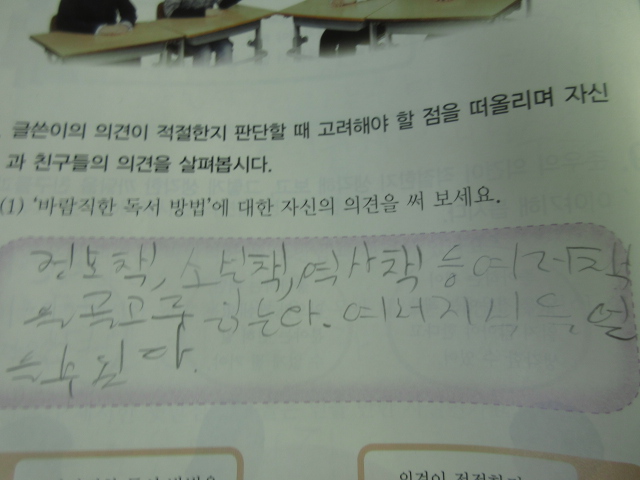 글쓴이의 의견이 적절한지 판단할 때 고려해야 할 점을 떠올리며 자신
과 친구들의 의견을 살펴봅시다.
(1) '바람직한 독서 방법'에 대한 자신의 의견을 써 보세요.
정보책, 소설책, 역사책 등 여러책
을 골고루 읽는다. 여러지식을 얻
을수 된다.